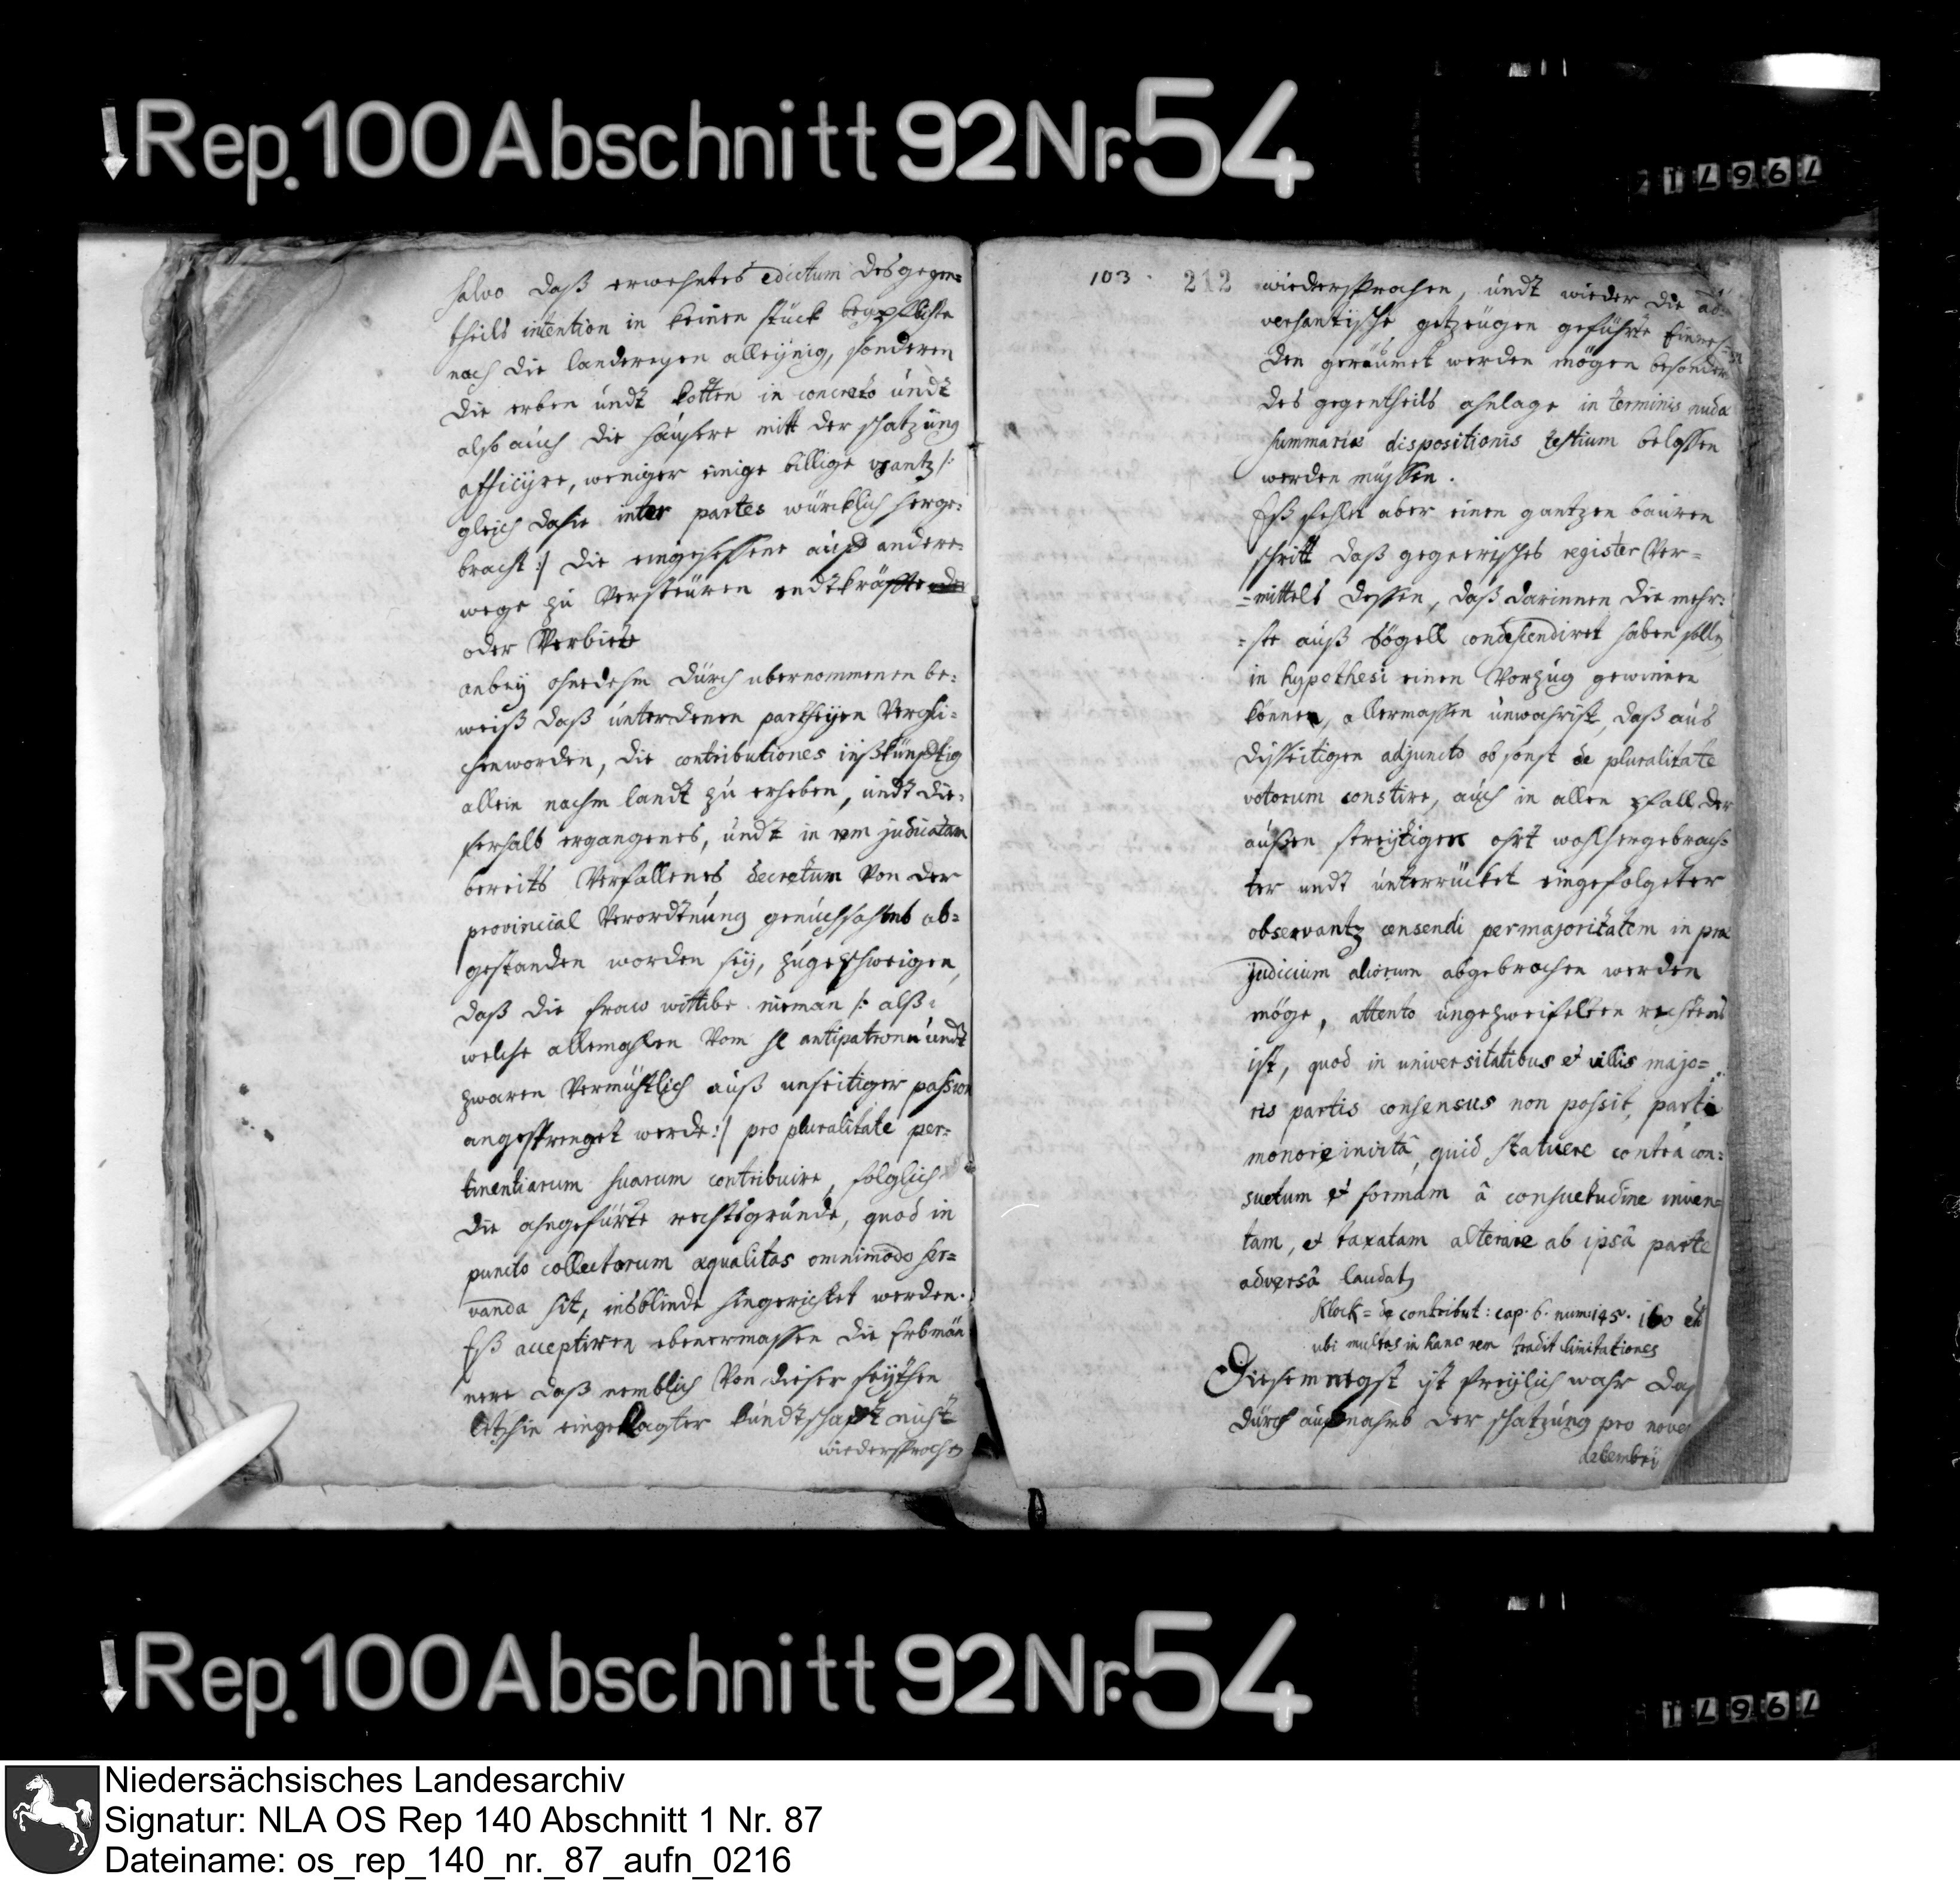 Rep. 100 Abschnitt 92 Nr. 54
salvo daß erwehntes edictum des gegen=
theils intention in keinen stück beypflichte
noch die landereyen alleynig, sonderen
die erben undt kotten in concreto undt
also auch die häusere mitt der schatzung
afficijre, weniger einige billige /:
gleich dahie inter partes würcklich herge=
bracht :/ die eingesessene auß andere
wege zu versteuren endtkräffte
oder verbiete
anbey ohnedehm durch ubernommenen be=
weiß daß unterdenen partheyen vergli=
chenworden, die contributiones inßkünfftig
allein nachm landt zu erheben, undt die=
serhalb ergangenes, undt in rem judicatam
bereits verfallenes decretum von der
provincial verordtnung genuchsahmb ab=
gestanden worden sey, zugeschweigen,
daß die fraw wittibe nieman /: alß
welche allemahlen vom hl antipatronu undt
zwaren vermühtlich auß unseitiger passion
angesprenget werde :/ pro pluralitate per=
tinentiarum suarum contribuire, folglich
die ahngefürte rechtsgründe, quod in
puncto collectarum æqualitas omnimodo ser=
vanda sit, insblinde hingerichtet werden.
Eß acceptiren ebenermassen die Erbmän
nere daß nemblich von dieser seythen
letzhin eingeklagter kundtschafft nicht
wiedersprochen
103
212
wiedersprochen, undt wieder die ad=
versantische getzeugen geführte
den geräumet werden mögen besonder
des gegentheils ahnlage in terminis nudæ
summariæ dispositionis testium belassen
werden müssen.
Eß fehlet aber einen gantzen bauren
schritt daß gegnerisches register ver=
=mittels dessen, daß darinnen die mehr=
=ste auß Sögell condescendiret haben sollen
in hypothesi einen vorzug gewinnen
können, allermassen unwahrist, daß aus
disseitigen adjuncto ob sonst de pluralitate
votorum constire, auch in allen fall der
außen streytigen ohrt wohlhergebrach=
ter undt unterrücket eingefolgeter
observantz censendi per majoritatem in præ
judicium aliorum abgebrochen werden
möge, attento ungezweifelten rechtens
ist, quod in universitatibus et villis majo=
ris partis consensus non possit, parte
monore invitâ, quid statuere contra con=
suetum et formam â consuetudine inven=
tam, et taxatam alterare ab ipsâ parte
adversâ laudat,
Klock = de contribut: cap. 6. num: 145. 160
ubi multas in hanc rem tradit limitationes
Diesemnegst ist freylich wahr daß
durch aufnahmb der schatzung pro nove
decembri
Rep. 100 Abschnitt 92 Nr. 54
Niedersächsisches Landesarchiv
Signatur: NLA OS Rep 140 Abschnitt 1 Nr. 87
Dateiname: os_rep_140_nr._87_aufn_0216